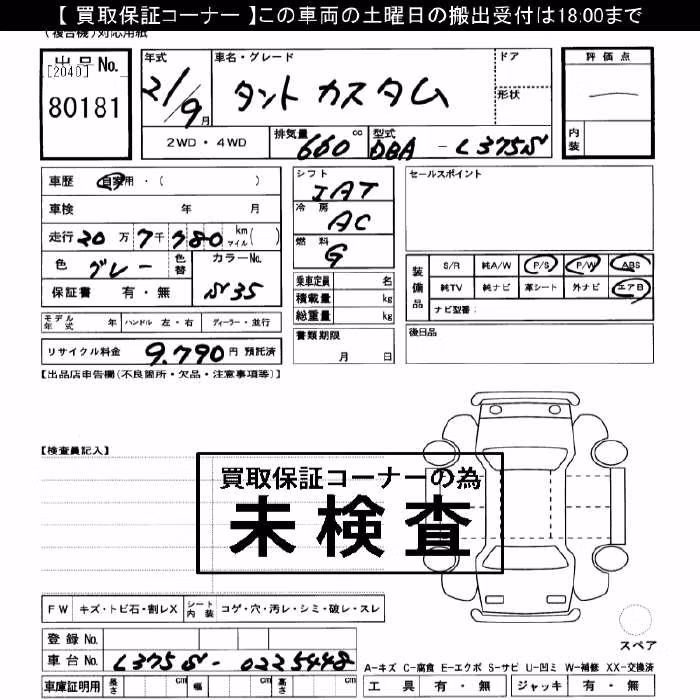 【 買取保証コーナー 】この車両の土曜日の搬出受付は18:00まで
(複合機)対応用紙
出品No.
[2040]
80181
年式
21/9月
車名・グレード
タント カスタム
ドア
形状
評価点
内装
2WD・4WD
排気量 660 cc
型式 DBA - L375S
車歴 自家用・( )
車検 年 月
走行 20万7千780 km マイル( )
色 グレー 色替 カラーNo. S35
保証書 有・無
モデル年式 年 ハンドル 左・右 ディーラー・並行
リサイクル料金 9,790円 預託済
シフト IAT
冷房 AC
燃料 G
乗車定員 名
積載量 kg
総重量 kg
書類期限
月 日
セールスポイント
装備品
S/R 純A/W P/S P/W ABS
純TV 純ナビ 革シート 外ナビ エアB
ナビ型番:
後日品
【出品店申告欄(不良箇所・欠品・注意事項等)】
【検査員記入】
買取保証コーナーの為
未検査
FW キズ・トビ石・割レX シート内装 コゲ・穴・汚レ・シミ・破レ・スレ
登録No.
車台No. L375S-0225448
車庫証明用 長さ cm 幅 cm 高さ cm
スペア
A-キズ C-腐食 E-エクボ S-サビ U-凹ミ W-補修 XX-交換済
工具 有・無 ジャッキ 有・無